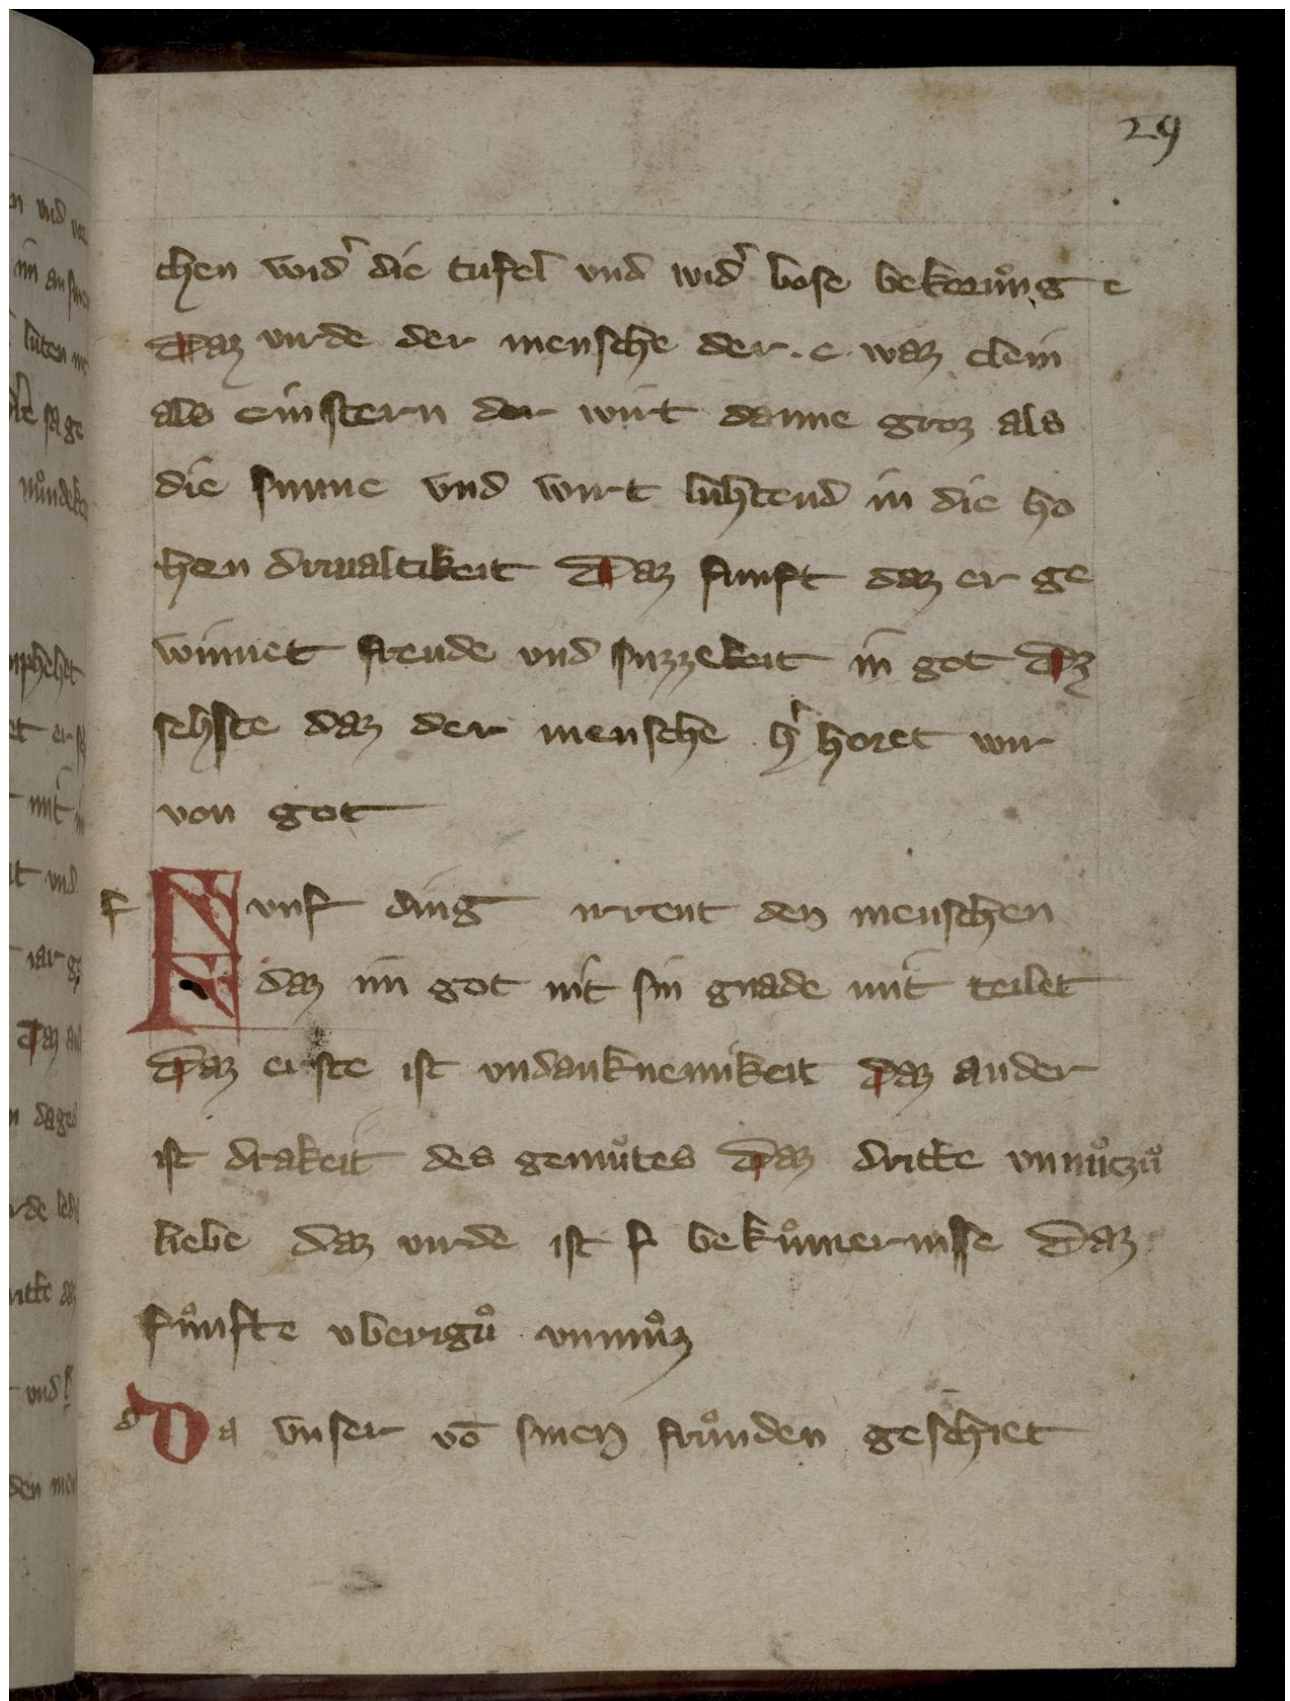 29
chen wid' die tufel vnd wid' bose bekorůng e
Daz virde der mensche der . e . waz clein
als ein stern der wirt danne groz als
die sunne vnd wirt luhtend in die ho
hen driualtikeit Daz funft daz er ge
winnet freude vnd suzzekeit in got Daz
sehste daz der mensche h' horet wir
von got
f
Fvnf ding irrent den menschen
daz im got nit sin gnade mit teilet
Daz erste ist vndanknemikeit Daz ander
ist drakeit des gemůtes Daz dritte vnnůczů
liebe daz virde ist f bekůmernisse Daz
fůnfte vberigů vnmůz
d
Da vnser vō sinen frůnden geschiet